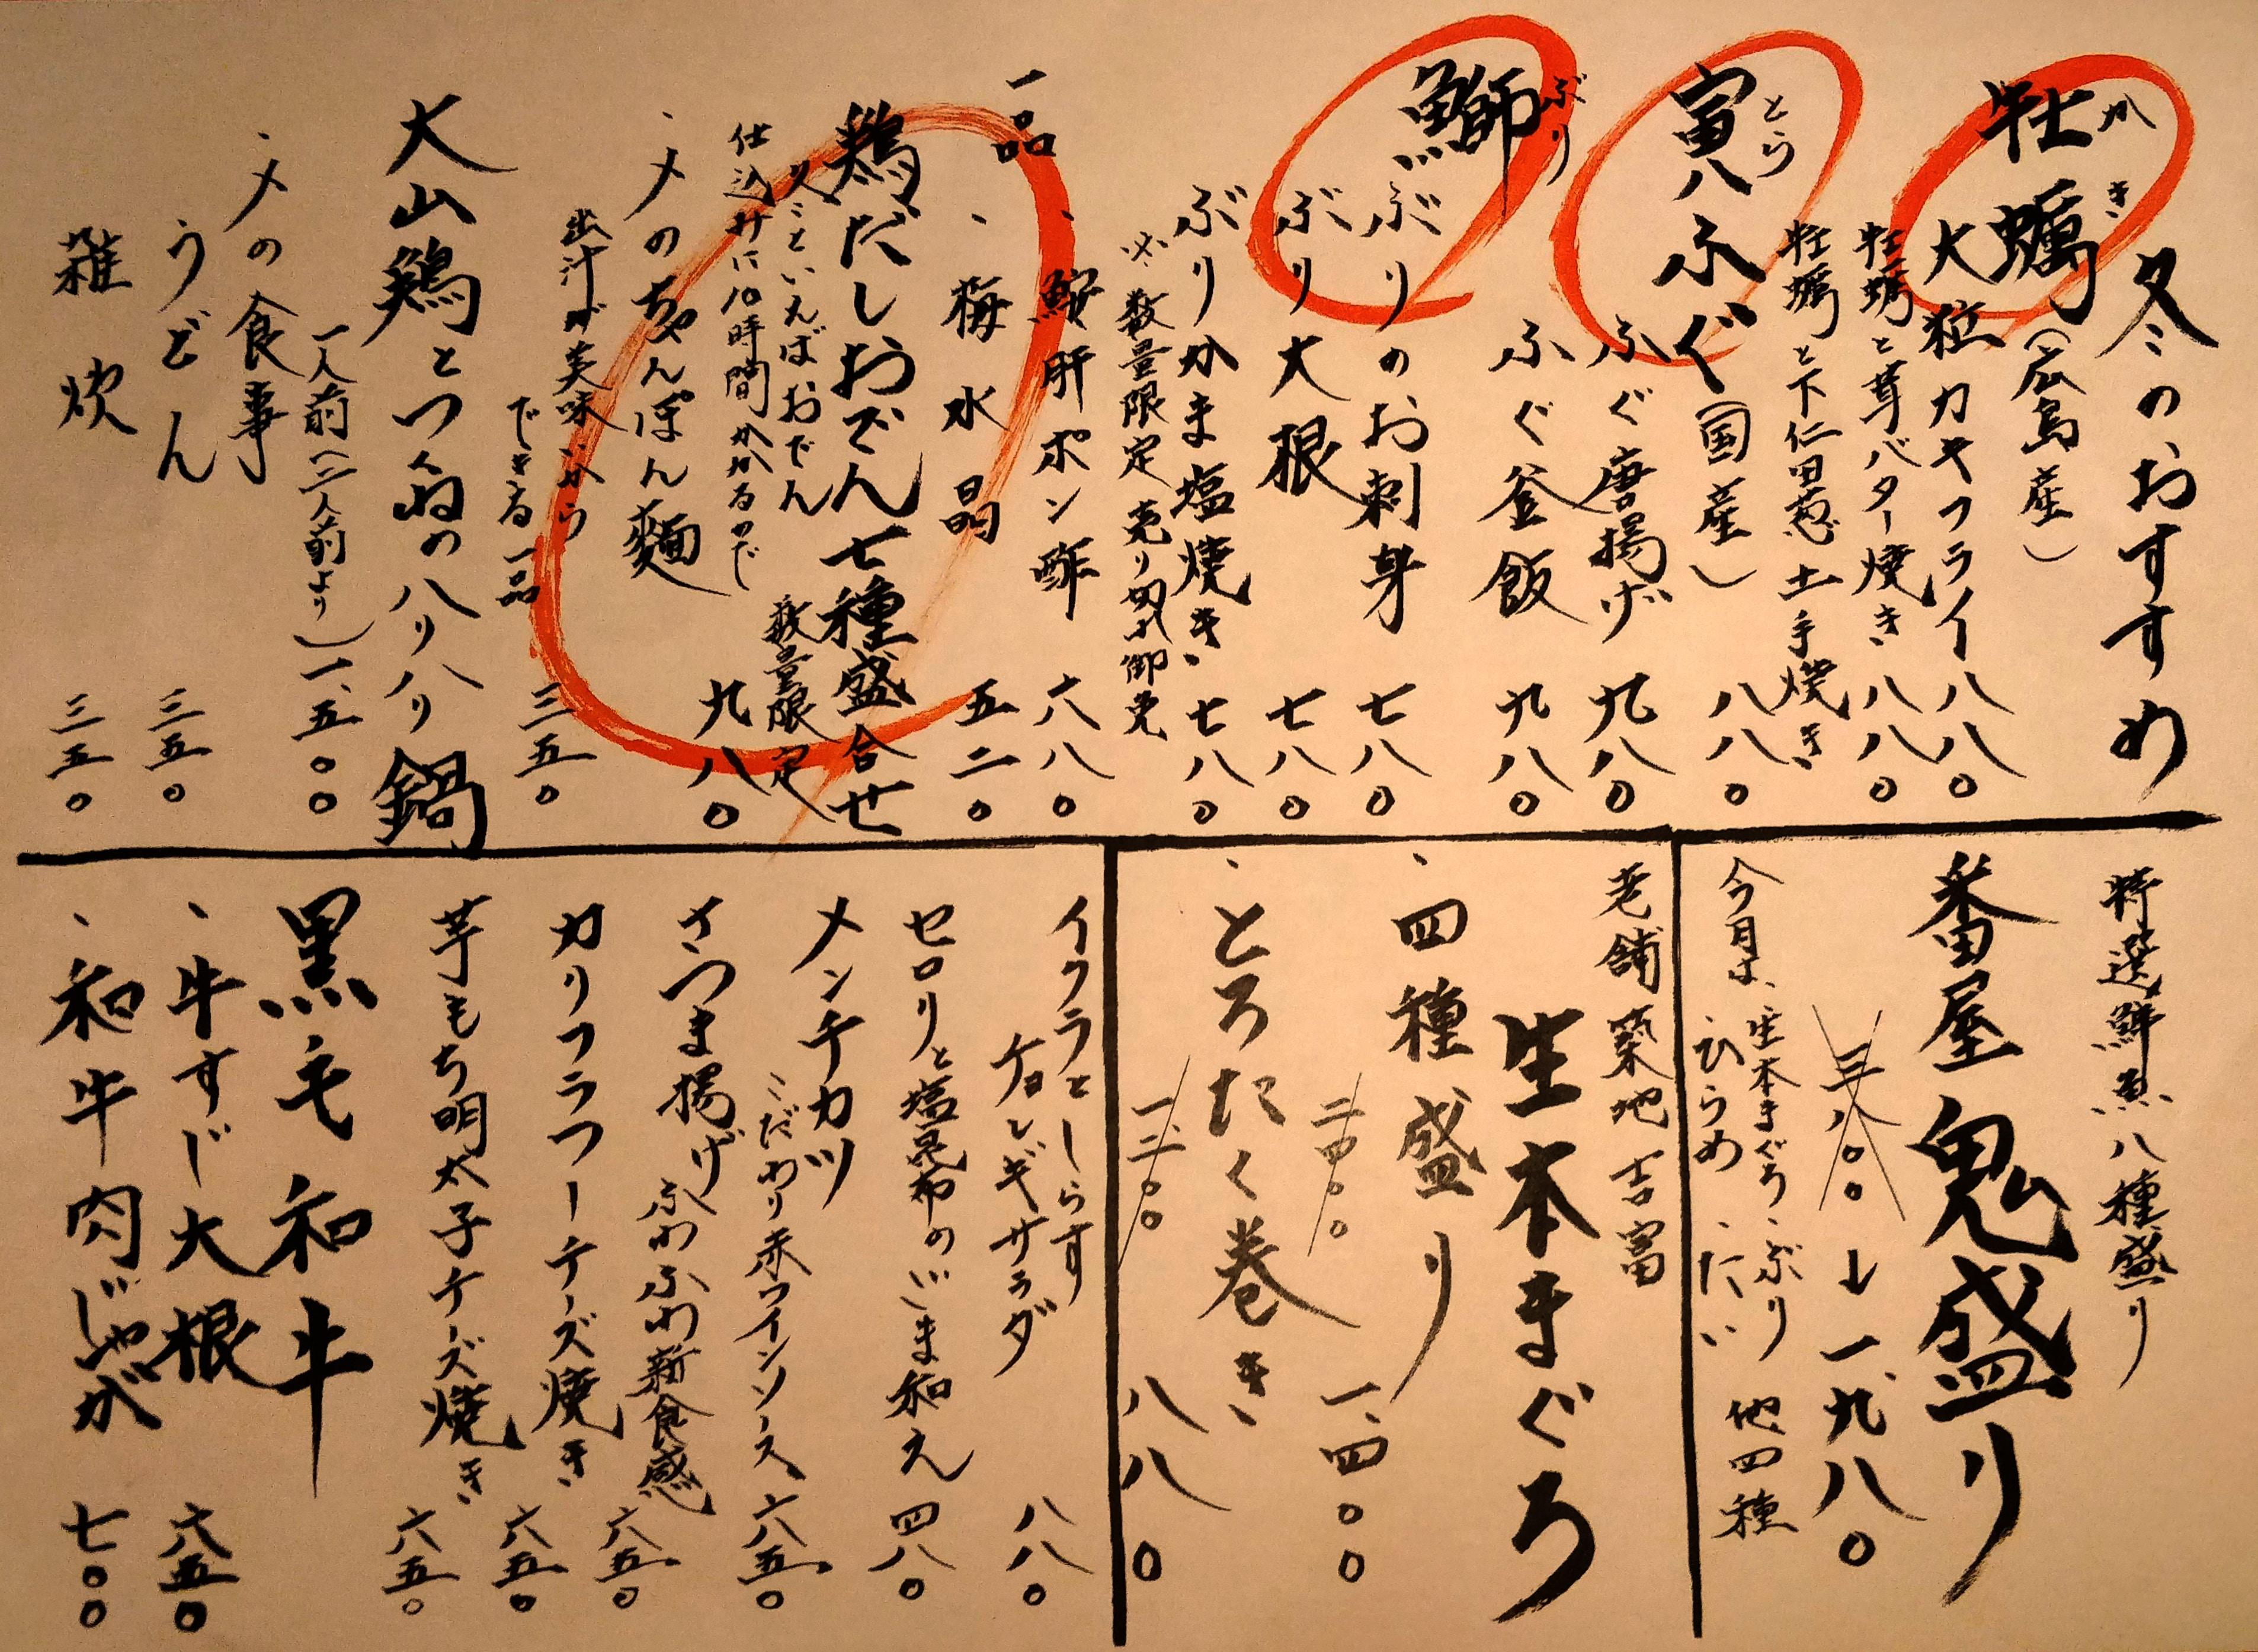 冬のおすすめ
かき
牡蠣（広島産）
大粒カキフライ 八八〇
牡蠣と茸バター焼き 八八〇
牡蠣と下仁田葱土手焼き 八八〇
とら
寅八ふぐ（国産）
ふぐ唐揚げ 九八〇
ふぐ釜飯 九八〇
ぶり
鰤
ぶりのお刺身 七八〇
ぶり大根 七八〇
ぶりかま塩焼き 七八〇
※数量限定 売り切れ御免
一品
、鮟肝ポン酢 六八〇
、梅水晶 五二〇
鶏だしおでん七種盛合せ
数量限定
冬といえばおでん
仕込みに10時間かかるので
九八〇
、〆のちゃんぽん麺
出汁が美味いから
できる一品
三五〇
大山鶏とつくねのハリハリ鍋
一人前（二人前より）一、五〇〇
、〆の食事
うどん 三五〇
雑炊 三五〇
特選鮮魚八種盛り
番屋鬼盛り
三八〇〇 → 一、九八〇
今月は、生本まぐろ、ぶり
、ひらめ、たい 他四種
老舗築地吉富
生本まぐろ
、四種盛り
二四〇〇 一、四〇〇
、とろたく巻き
一二〇〇 八八〇
イクラとしらす
チョレギサラダ 八八〇
セロリと塩昆布のごま和え 四八〇
メンチカツ こだわり赤ワインソース 六五〇
さつま揚げ ふわふわ新食感 六五〇
カリフラワーチーズ焼き 六五〇
芋もち明太子チーズ焼き 六五〇
黒毛和牛
、牛すじ大根 六五〇
、和牛肉じゃが 七〇〇